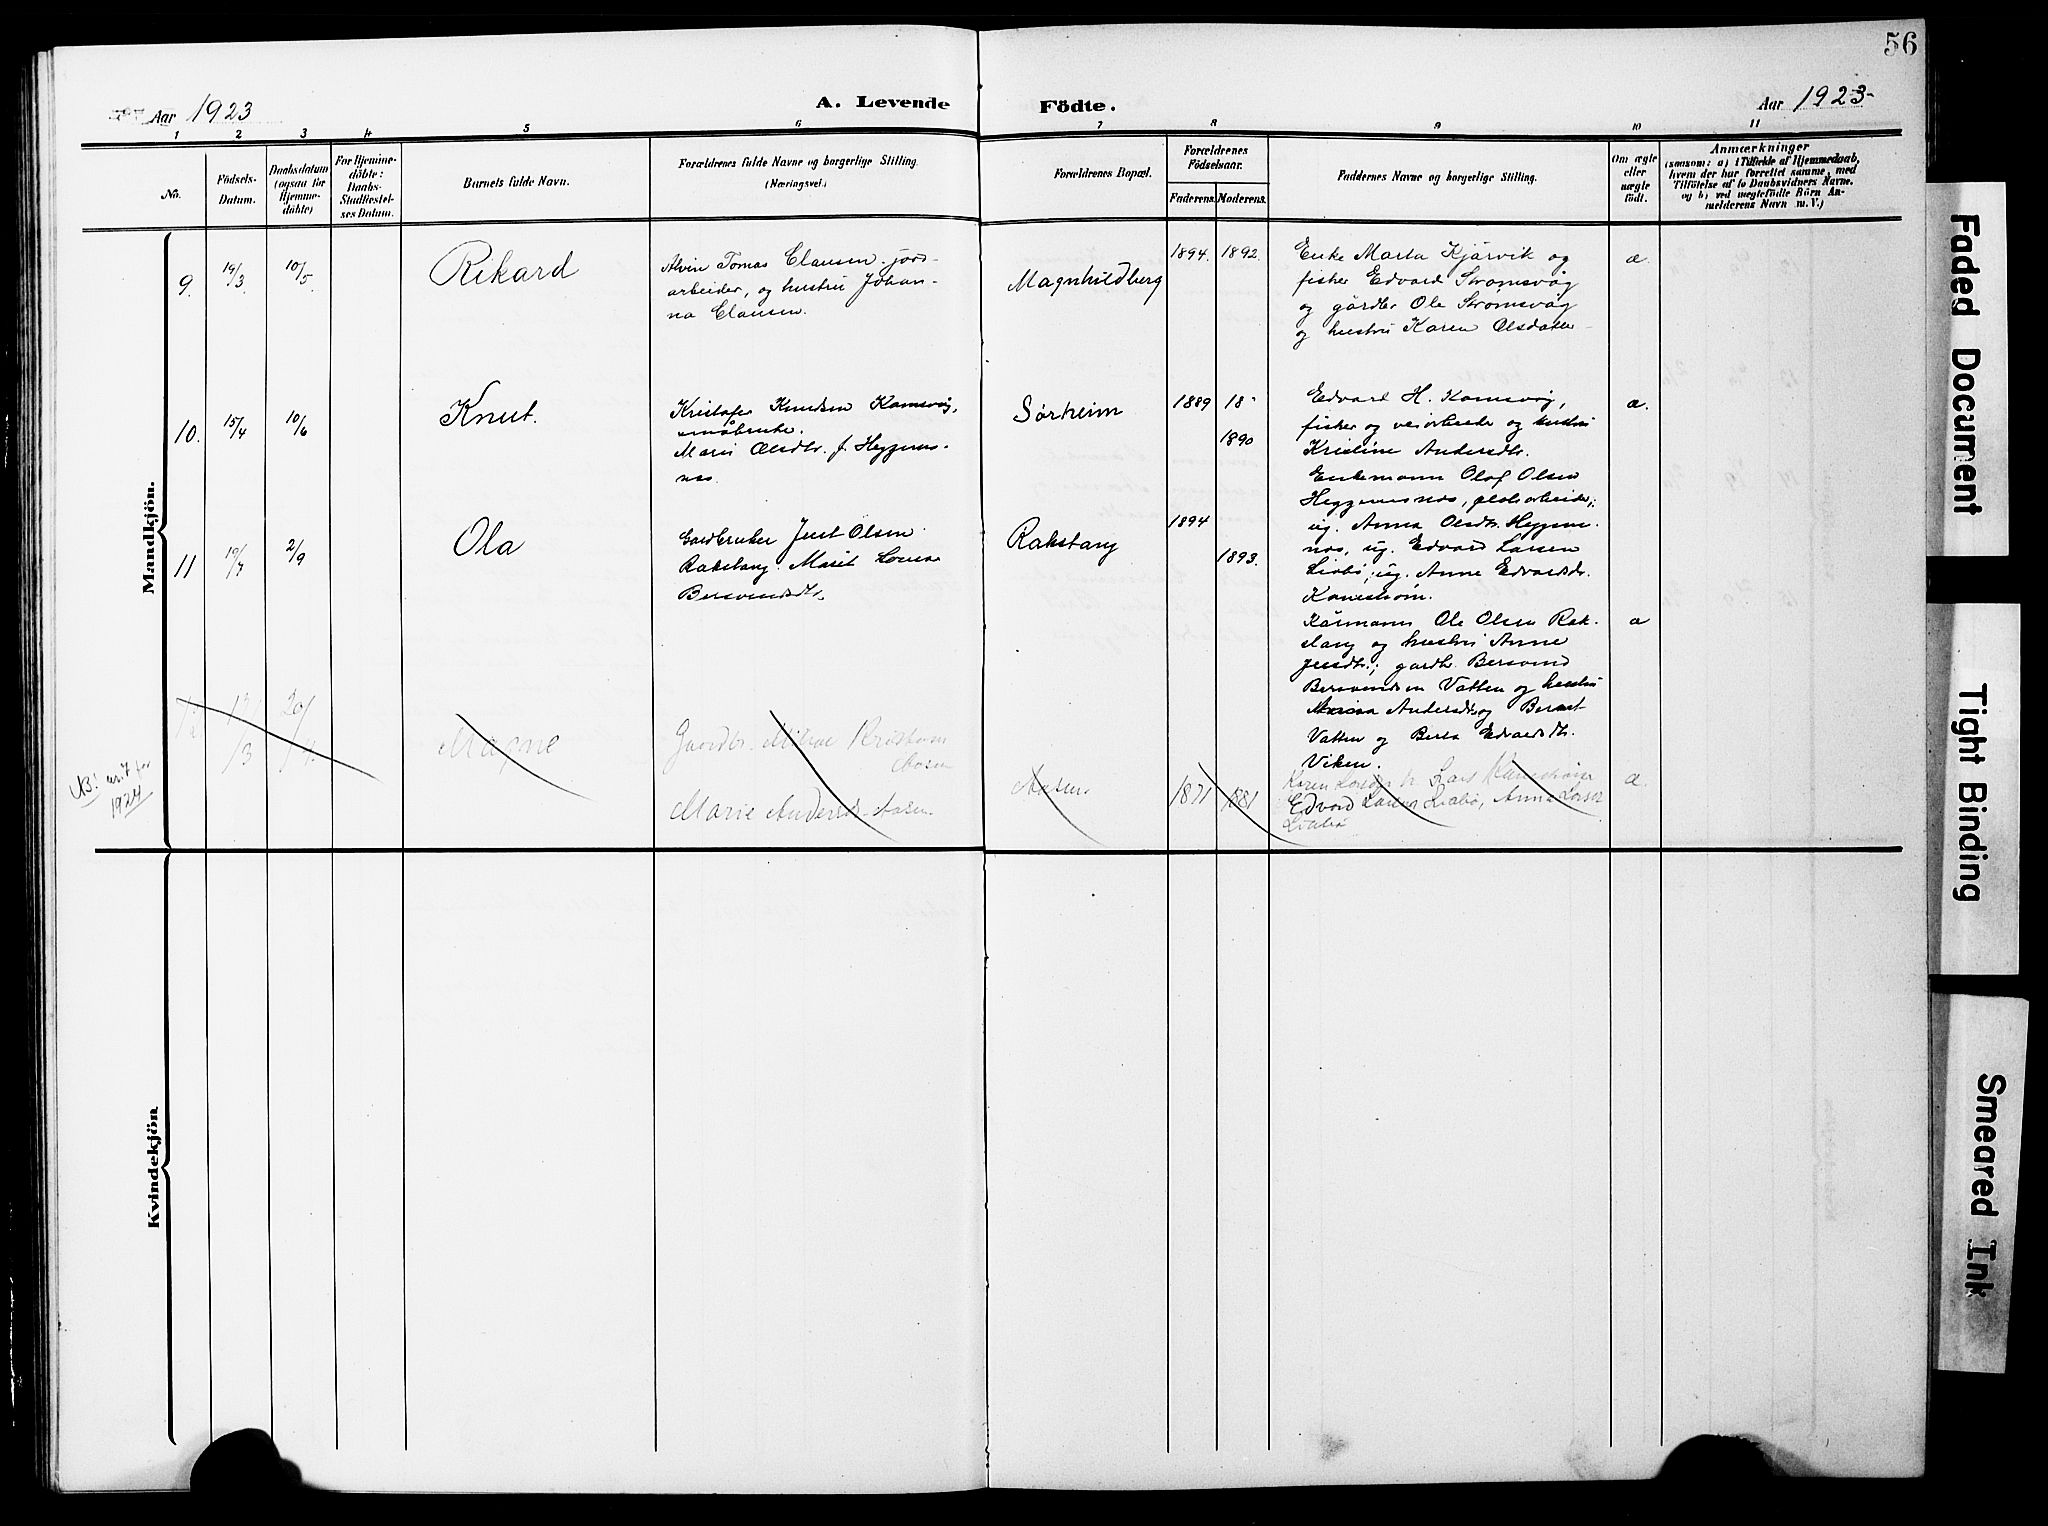 56
Aar 1923
A. Levende
Födte.
Aar 1923
1 2 3 4 5 6 7 8 9 10 11
No.
Födsels-
Datum.
Daabsdatum
(ogsaa for
Hjemme-
döbte)
For Hjemme-
döbte:
Daabs-
Stadfæstel-
ses Datum.
Barnets fulde Navn.
Forældrenes fulde Navne og borgerlige Stilling.
(Næringsvei.)
Forældrenes Bopæl.
Forældrenes
Födselsaar.
Faderens.
Moderens.
Faddernes Navne og borgerlige Stilling.
Om ægte
eller
uægte
födt.
Anmærkninger
(saasom: a) i Tilfælde af Hjemmedaab,
hvem der har forrettet samme, med
Tilföielse af to Daabsvidners Navne.
og b) ved uægtefödte Börn An-
melderens Navn m. V.)
Mandkjön.
9.
19/3
10/5
Rikard
Alvin Tomas Clausen, jord-
arbeider, og hustru Johan-
na Clausen.
Magnhildberg
1894.
1892.
Enke Marta Kjörvik og
fisker Edvard Stromsvåg
og gårdbr Ole Stromsvåg
og hustru Karen Olsdatter
æ.
10.
15/4
10/6
Knut.
Kristofer Knudsen Kamsvåg,
småbruker.
Marie Olsdtr. f. Heggenes-
nes.
Sørheim
1889
18
1890
Edvard H. Kamsvåg,
fisker og veiarbeider og hustru
Kristine Andersdtr.
Enkemann Olaf Olsen
Heggenesnes,
ug. Anna Olsdtr Heggene-
nes, ug. Edvard Larsen
Liabø, ug. Anne Edvardsdtr.
Kanestrøm.
æ.
11
19/7
2/9
Ola
Gardbruker Just Olsen
Rakstang. Marit Lovise
Bersvendsdtr.
Rakstang
1894
1893.
Kårmann Ole Olsen Rak-
stang og hustru Anne
Jensdtr.; gardbr. Bersvend
Bersvendsen Vatten og hustru
Andersdtr og Bernt
Vatten og Berta Edvardsdtr.
Viken.
æ
NB! født for
1924
/3
20/4.
Magne
Gaardbr. Kristian
Aasen
Marie Andersdtr Aasen
Aasen.
1871
1881
Karen Lars Kanestrøm
Edvard Larsen Liabø, Anna Larsen
Liabø
æ.
Kvindekjön
Faded Document
Tight Binding
Smeared Ink